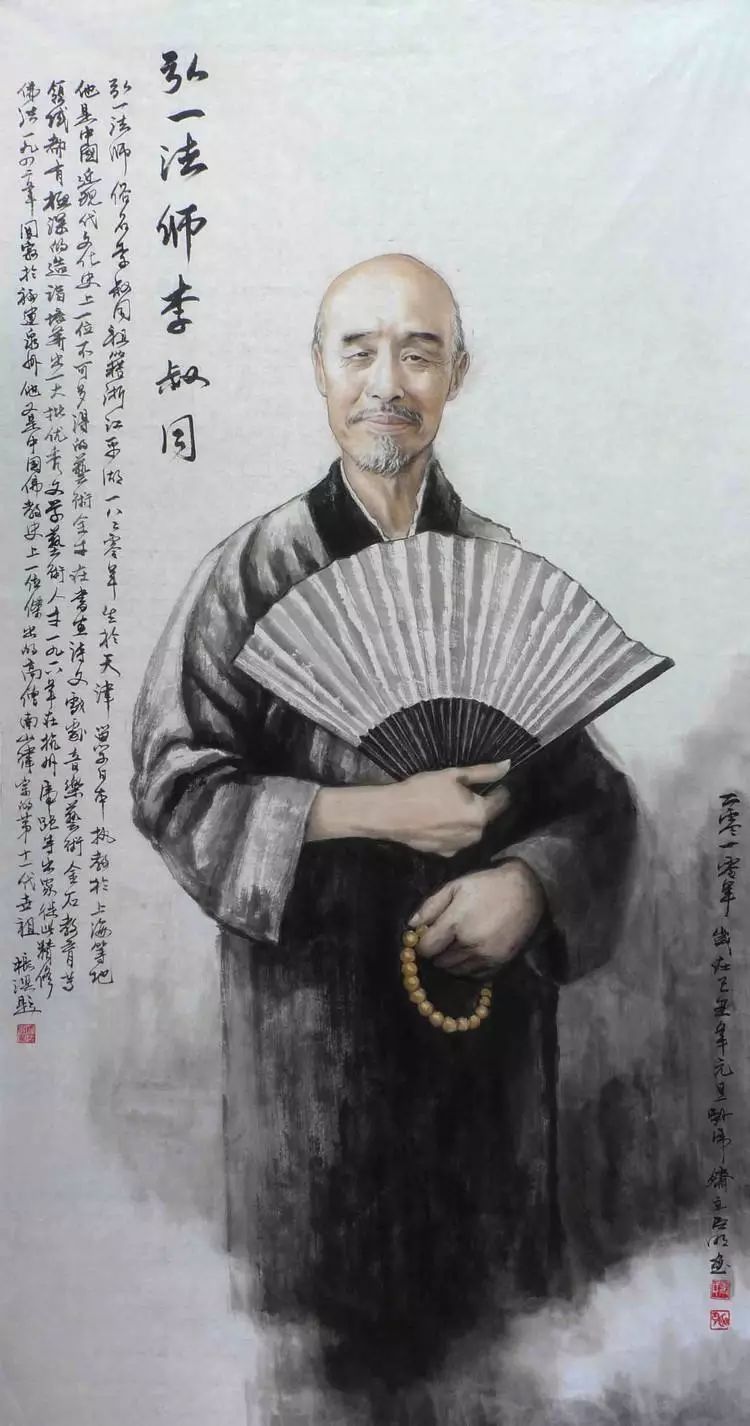 弘一法师李叔同
弘一法师俗名李叔同祖籍浙江平湖一八八零年生於天津留学日本执教於上海等地
他是中國近现代文化史上一位不可多得的藝術全才在書画诗文戲劇音樂藝術金石教育等
领域都有極深的造诣培养出一大批优秀文学藝術人才一九一八年在杭州虎跑寺出家從此精修
佛法一九四二年圆寂於福建泉州他又是中国佛教史上一位傑出的高僧南山律宗的第十一代世祖
二零一零年歲在己丑年元旦